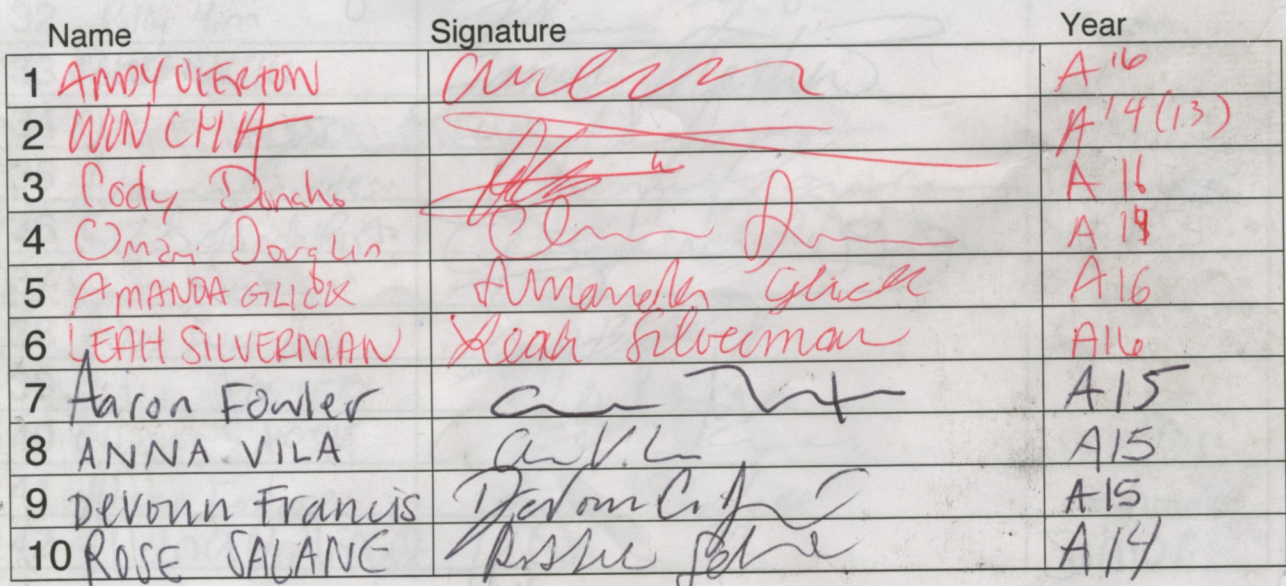 Name Signature Year
1 ANDY OVERTON A'16
2 WON CHA A'14(13)
3 Cody Donaho A 16
4 Omari Douglin A 14
5 AMANDA GLICK Amanda Glick A16
6 LEAH SILVERMAN Leah Silverman A16
7 Aaron Fowler A15
8 ANNA VILA A15
9 Devonn Francis A15
10 ROSE SALANE A14